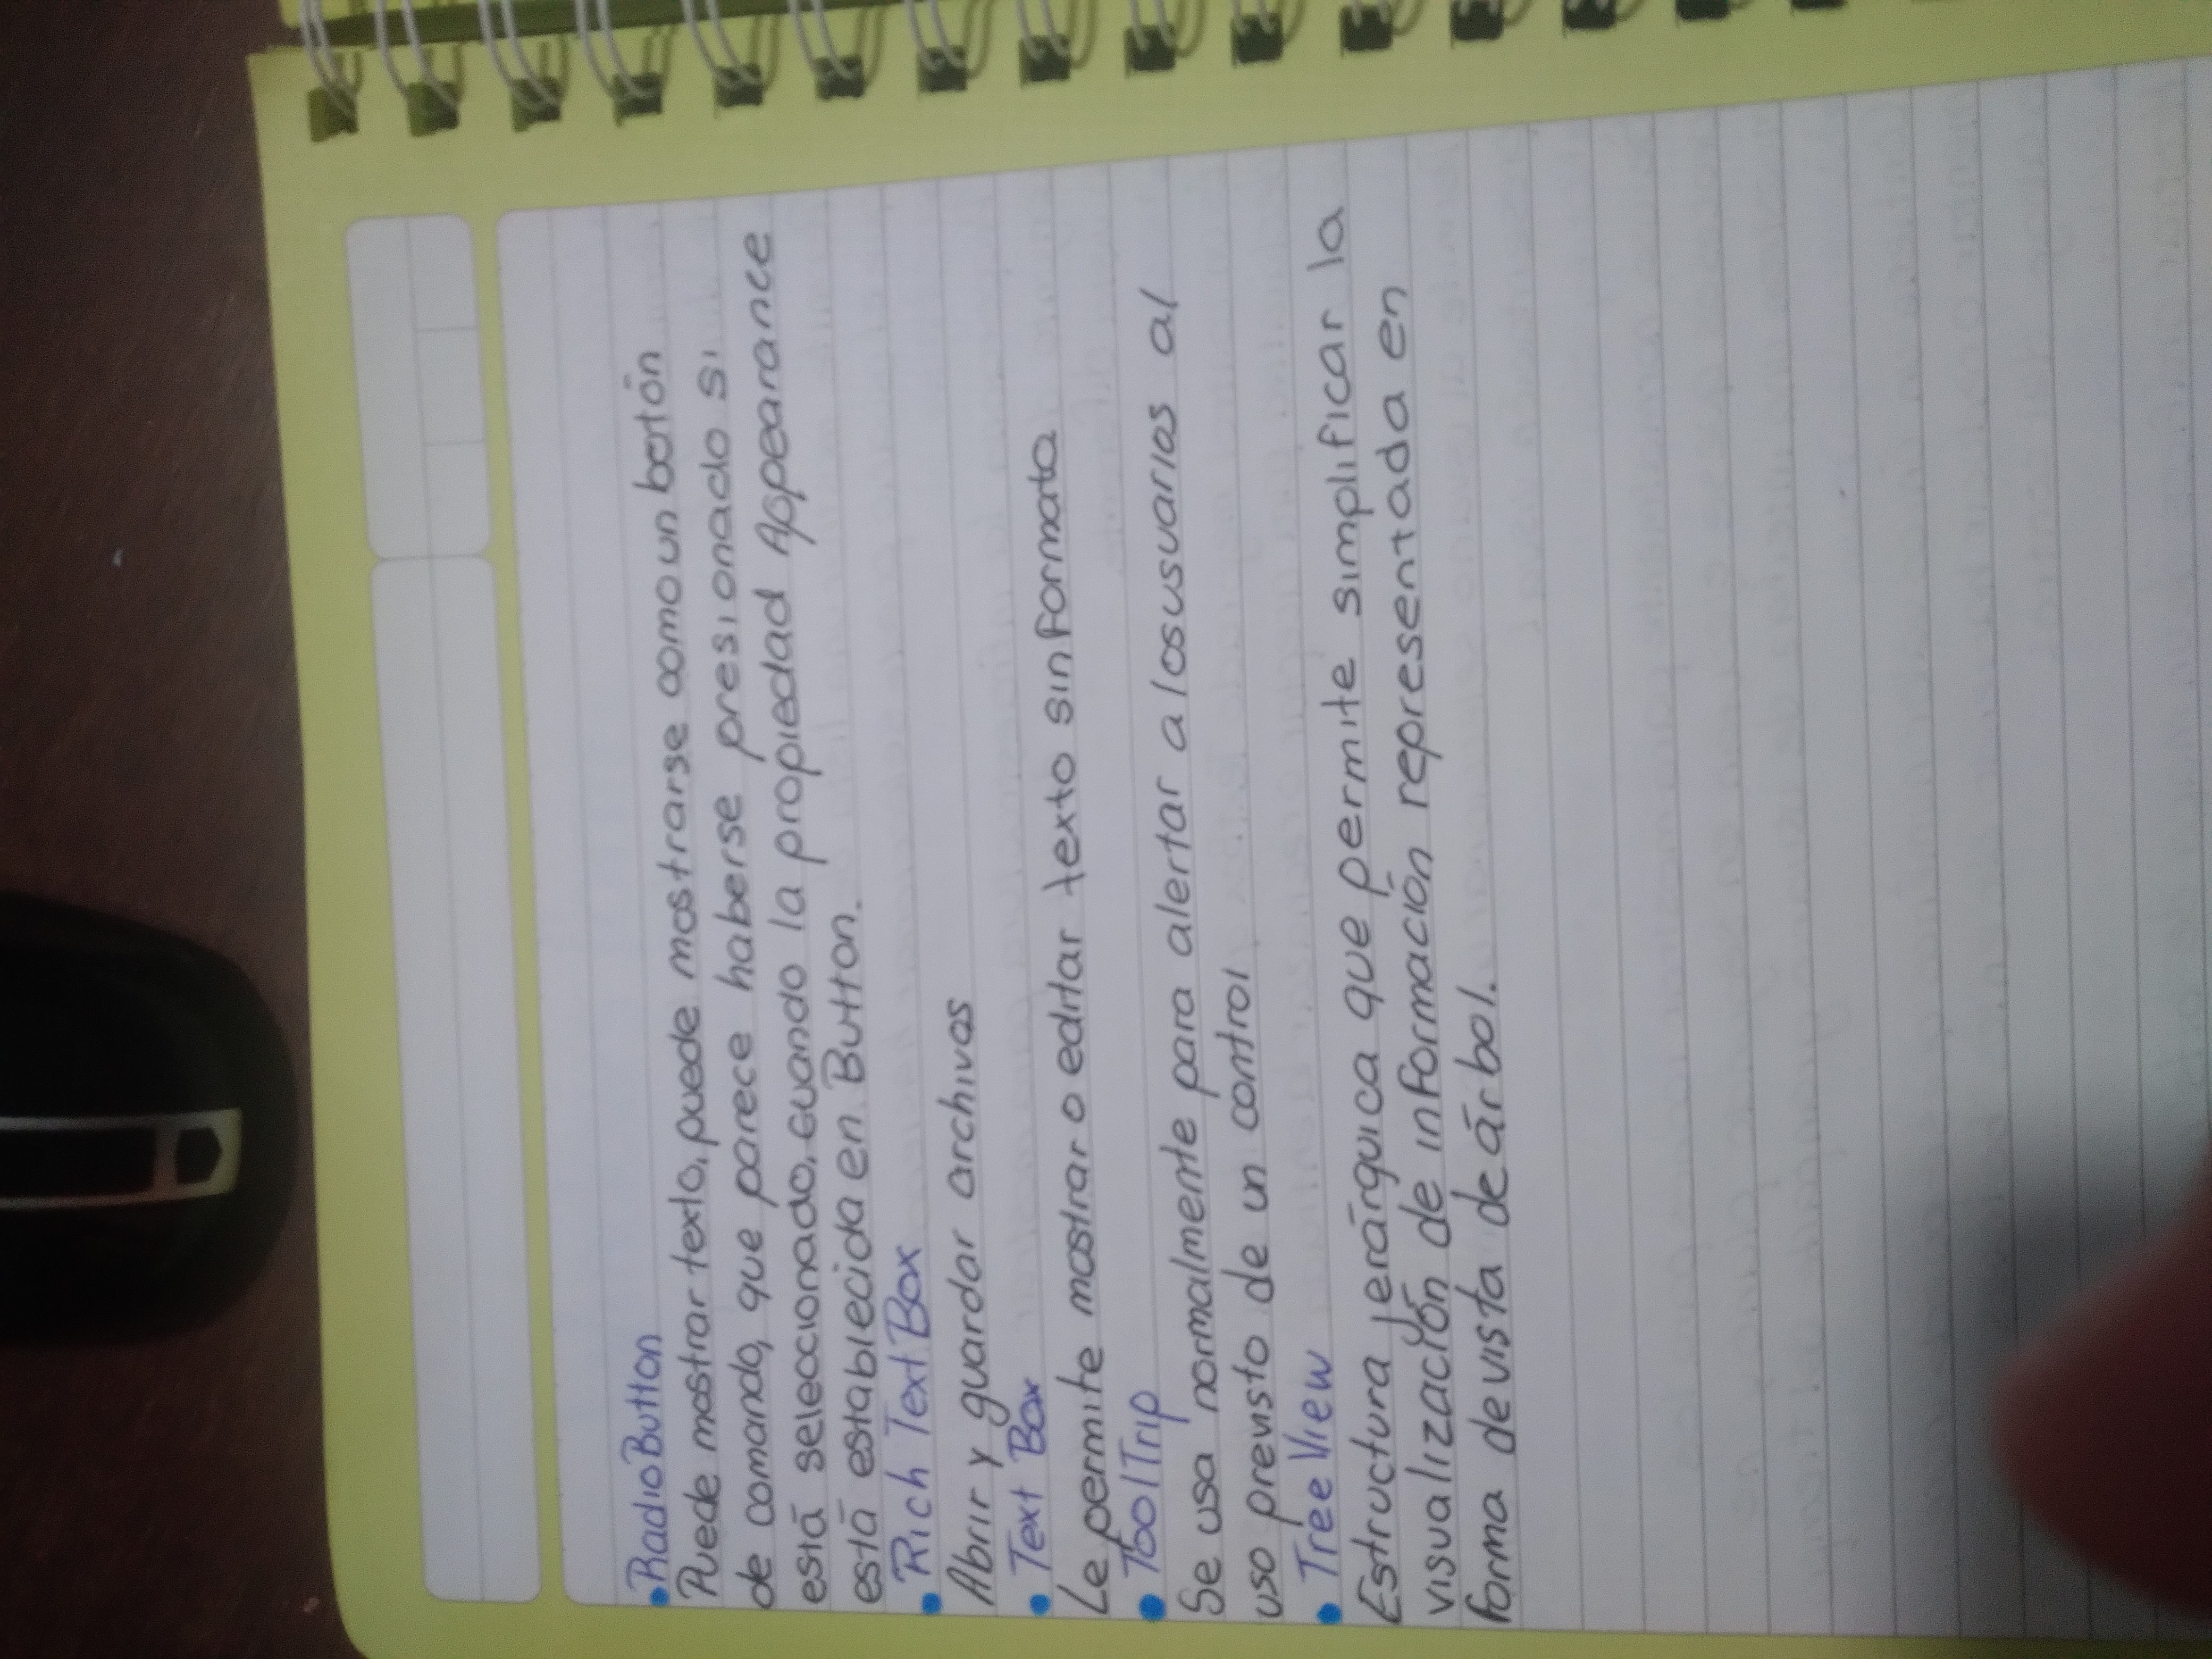 • RadioButton
Puede mostrar texto, puede mostrarse como un botón
de comando, que parece haberse presionado si
está seleccionado, cuando la propiedad Appearance
está establecida en Button.
• Rich Text Box
Abrir y guardar archivos
• Text Box
Le permite mostrar o editar texto sin formato
• ToolTrip
Se usa normalmente para alertar a los usuarios al
uso previsto de un control
• Tree View
Estructura jerárquica que permite simplificar la
visualización de información representada en
forma de vista de árbol.